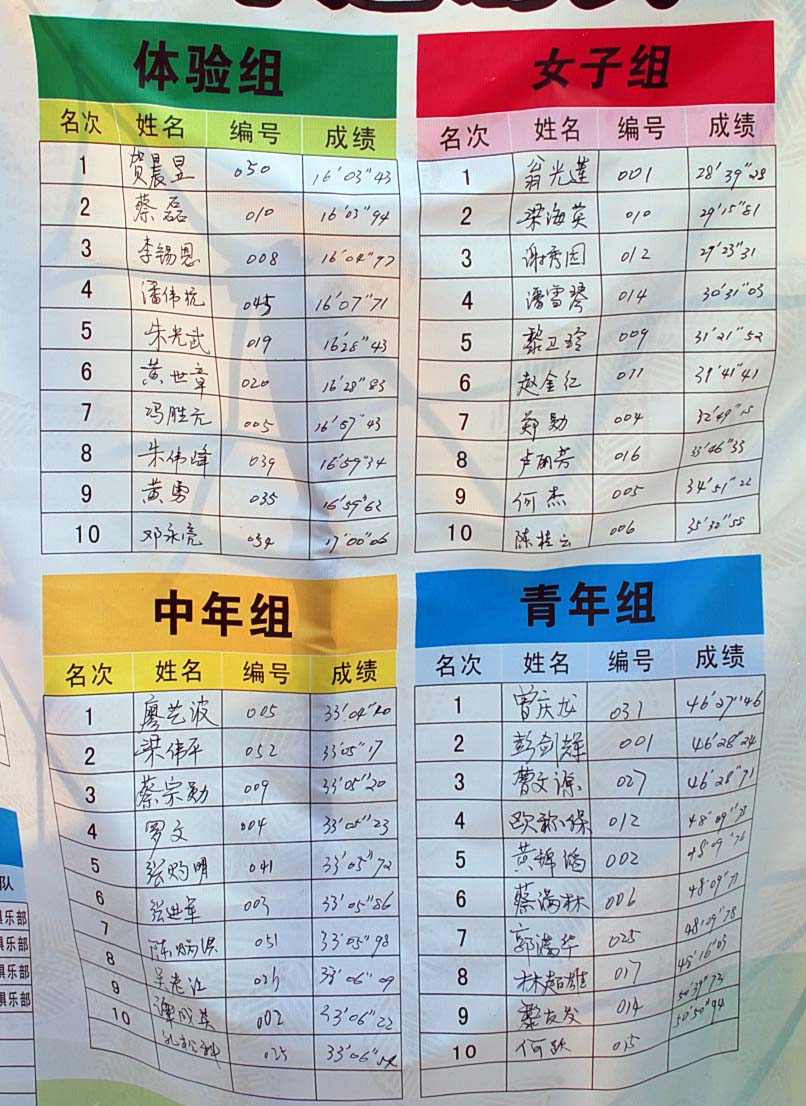 体验组
名次 姓名 编号 成绩
1 贺晨昱 050 16'03"43
2 蔡磊 010 16'03"94
3 李锡恩 008 16'04"97
4 潘伟杭 045 16'07"71
5 朱光武 019 16'28"43
6 黄世章 020 16'28"83
7 冯胜亢 005 16'57"43
8 朱伟峰 039 16'59"34
9 黄勇 035 16'59"62
10 邓永亮 034 17'00"06
女子组
名次 姓名 编号 成绩
1 翁光莲 001 28'39"28
2 梁海英 010 29'15"81
3 谢秀园 012 29'23"31
4 潘雪琴 014 30'31"03
5 黎卫玲 009 31'21"52
6 赵金红 011 31'41"41
7 郑勋 004
8 卢丽芳 016 33'46"33
9 何杰 005 34'51"22
10 陈桂云 006 35'32"58
中年组
名次 姓名 编号 成绩
1 廖艺波 005
2 梁伟平 052 33'05"17
3 蔡宗勋 009 33'05"20
4 罗文 004 33'05"23
5 张灼明 041 33'05"72
6 张进军 003 33'05"86
7 051 33'05"98
8 33'06"09
9 002 33'06"22
10 025
青年组
名次 姓名 编号 成绩
1 曾庆龙 031 46'27"46
2 彭剑辉 001 46'28"24
3 曹文源 027 46'28"71
4 012
5 黄锦滔 002 48'09"76
6 蔡满林 006 48'09"77
7 郭满华 025 48'09"78
8 林超雄 017 48'16"03
9 黎友发 014 50'39"73
10 何跃 015 50'50"94
队
俱乐部
俱乐部
俱乐部
俱乐部